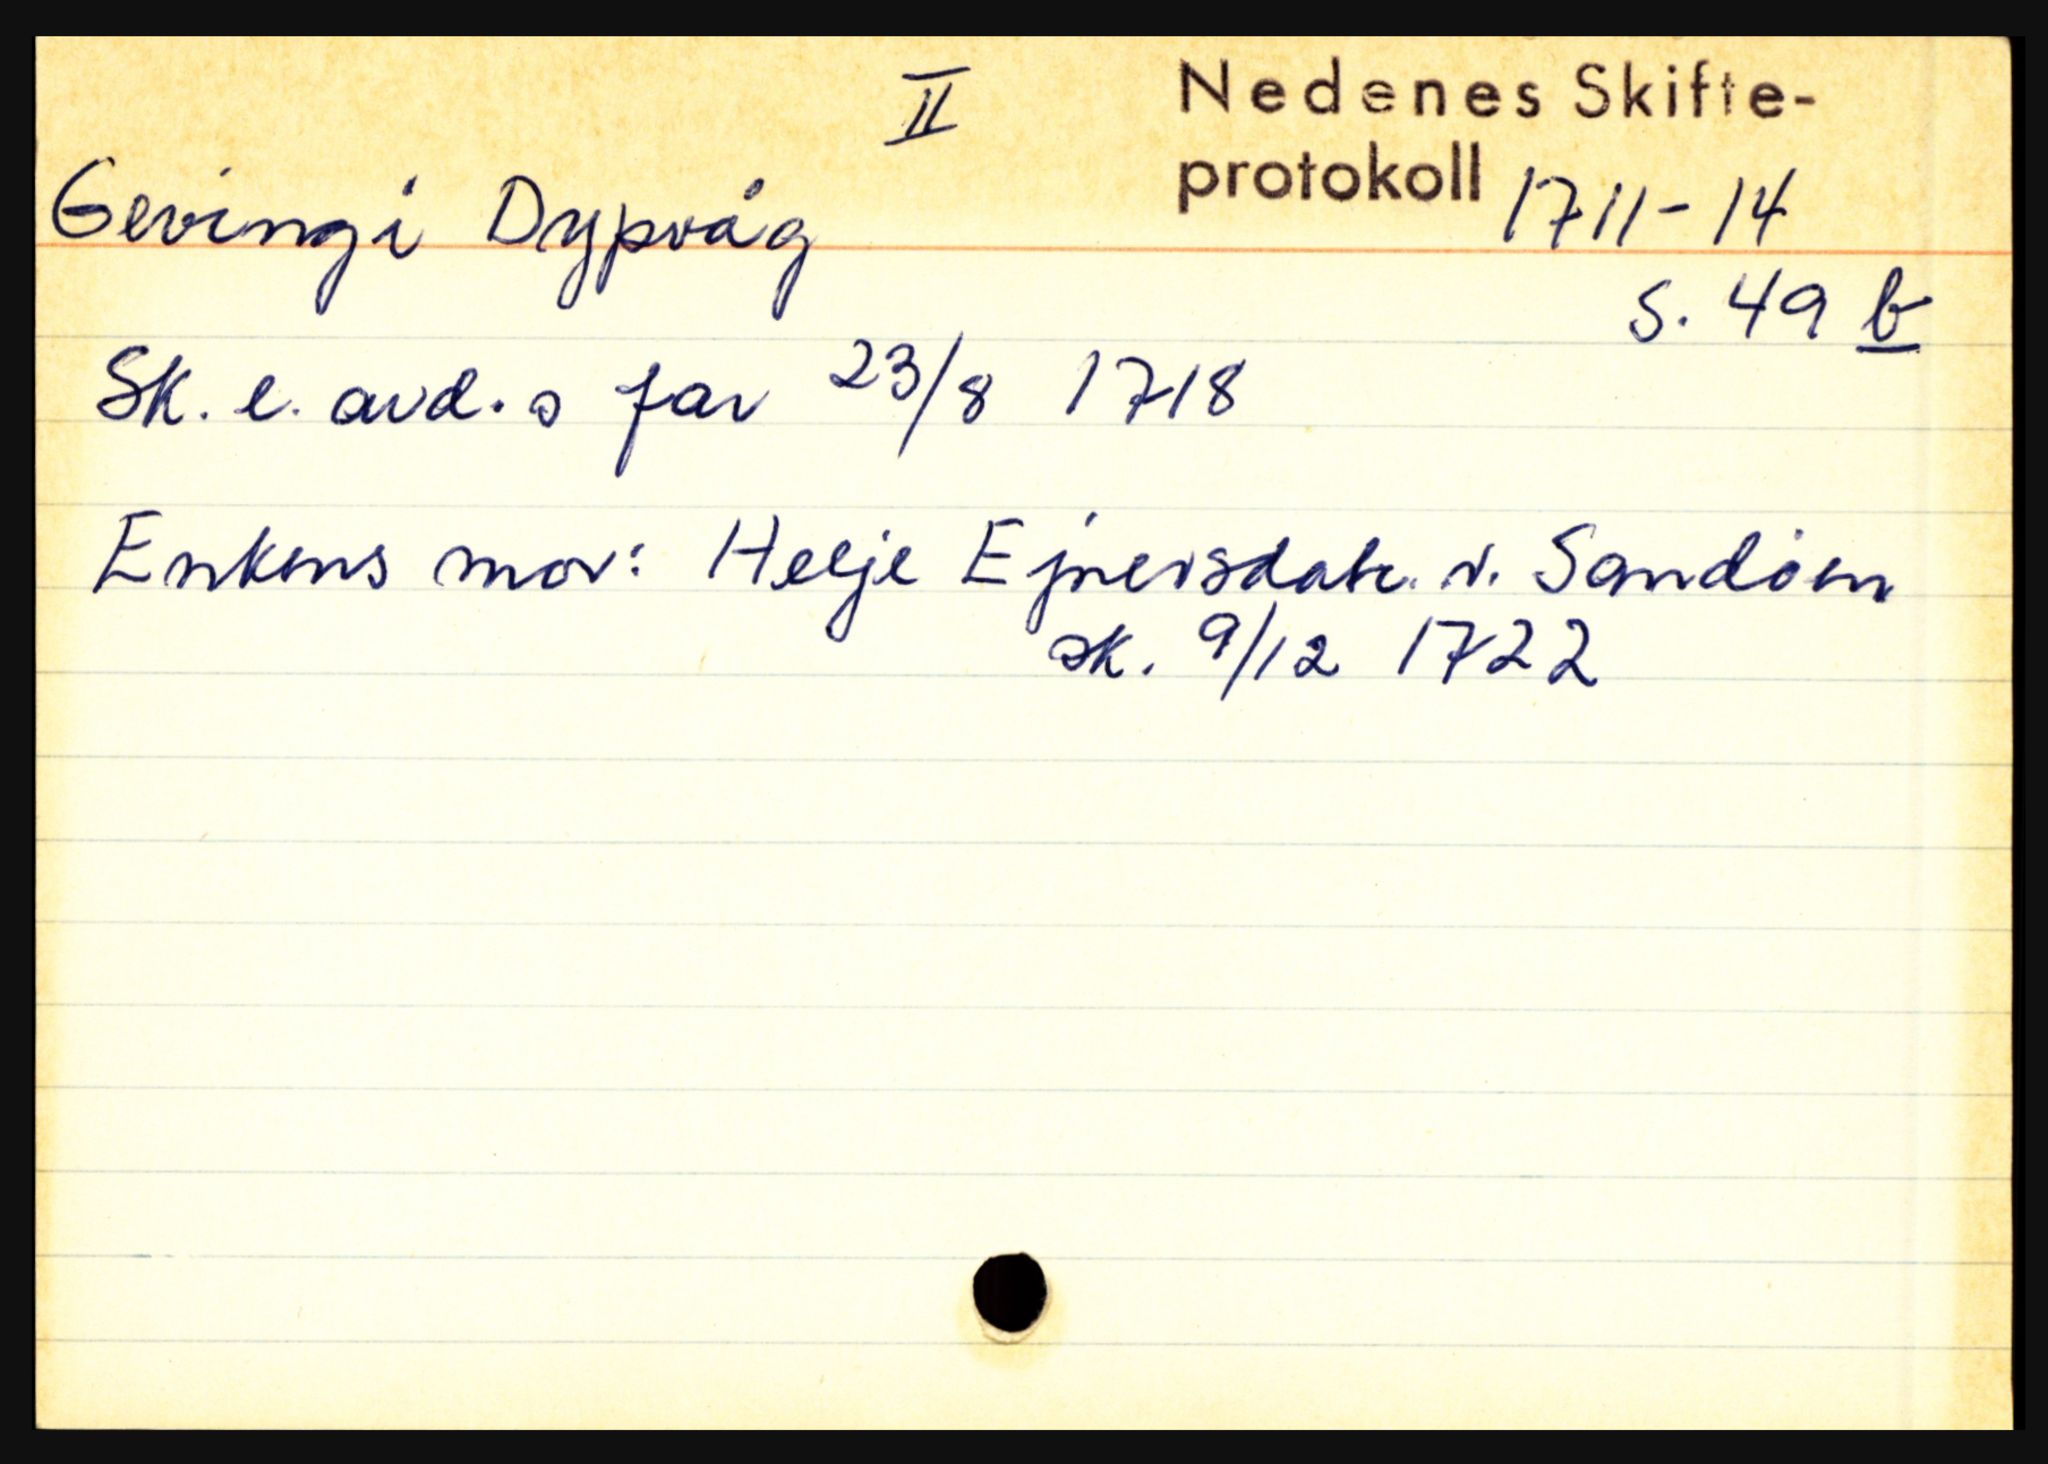 II
Nedenes Skifte-
protokoll 1711-14
Geving i Dypvåg
s. 49 b
Sk. e. avd.s far 23/8 1718
Enkens mor: Helje Ejnersdatr. v. Sandøen
sk. 9/12 1722